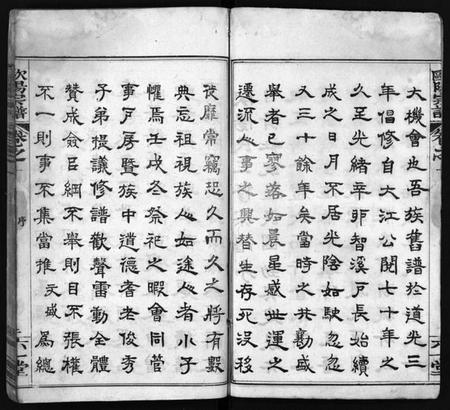 大機會也吾族舊譜於道光三
年倡修自大江公閱七十年之
久至光緒辛卯智溪戶長始續
成之日月不居光陰如駛忽忽
又三十餘年矣當時之共勷盛
舉者已寥落如晨星感世運之
遷流人事之興替生存死沒移
徙靡常竊恐久而久之將有數
典忘祖視族人如途人者小子
懼焉壬戌冬祭祀之暇會同管
事戶房暨族中道德耆老俊秀
子弟提議修譜歡聲雷動全體
贊成僉曰綱不舉則目不張權
不一則事不集當推文盛爲總
歐陽宗譜
卷之一
六一堂
歐陽宗譜
卷之一
序
六一堂